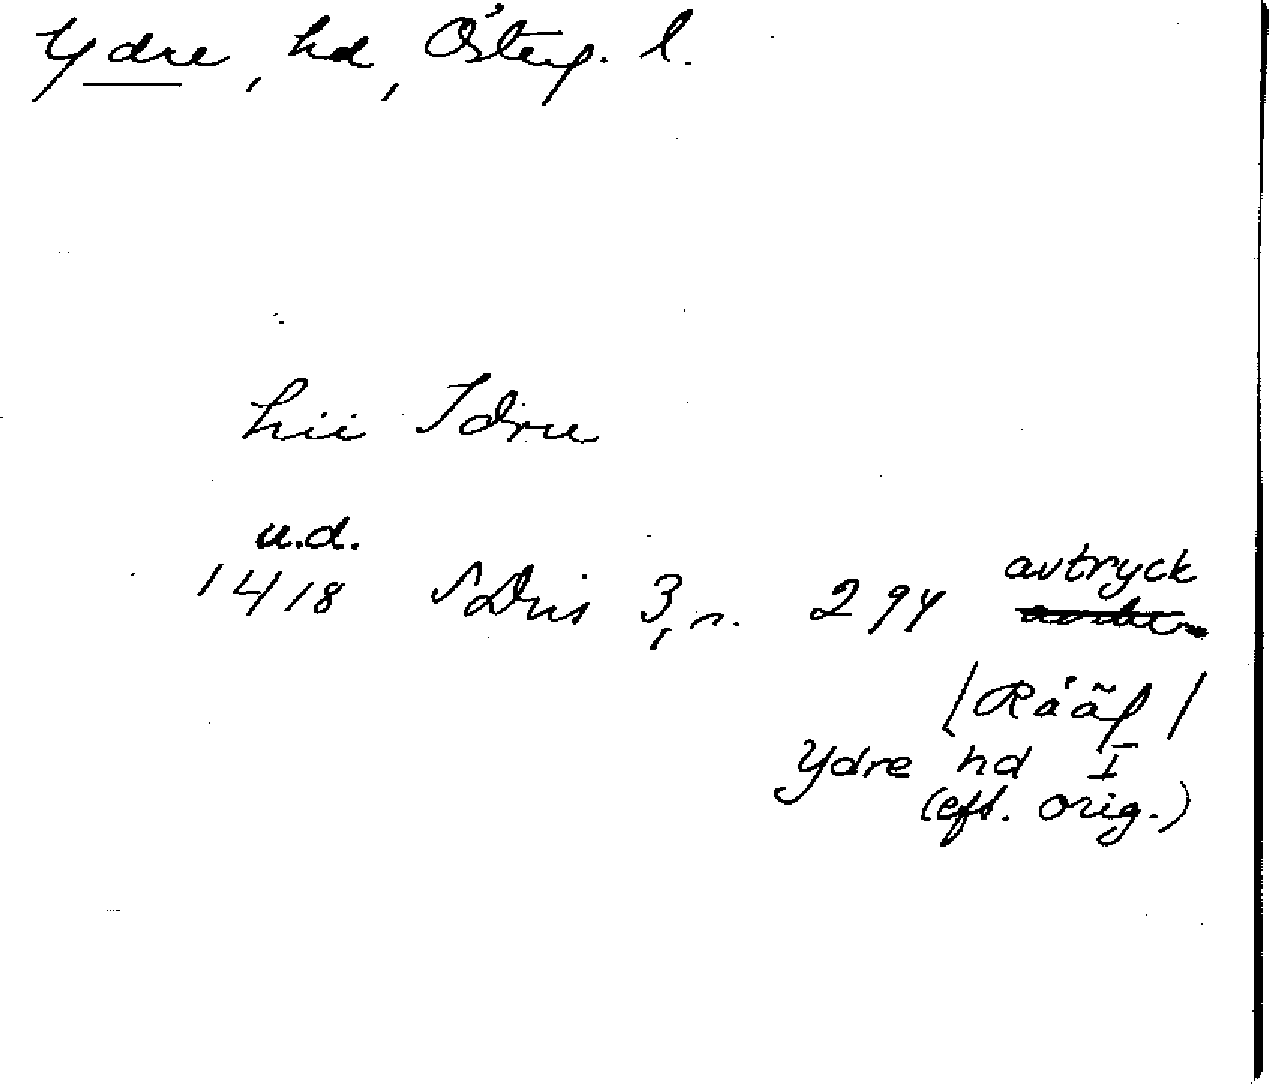 Ydre, hd, Österg. l.
hii Idru
u.d.
1418 SDns 3, s. 294 avtryck
/Rääf/
Ydre hd I
(eft. orig.)